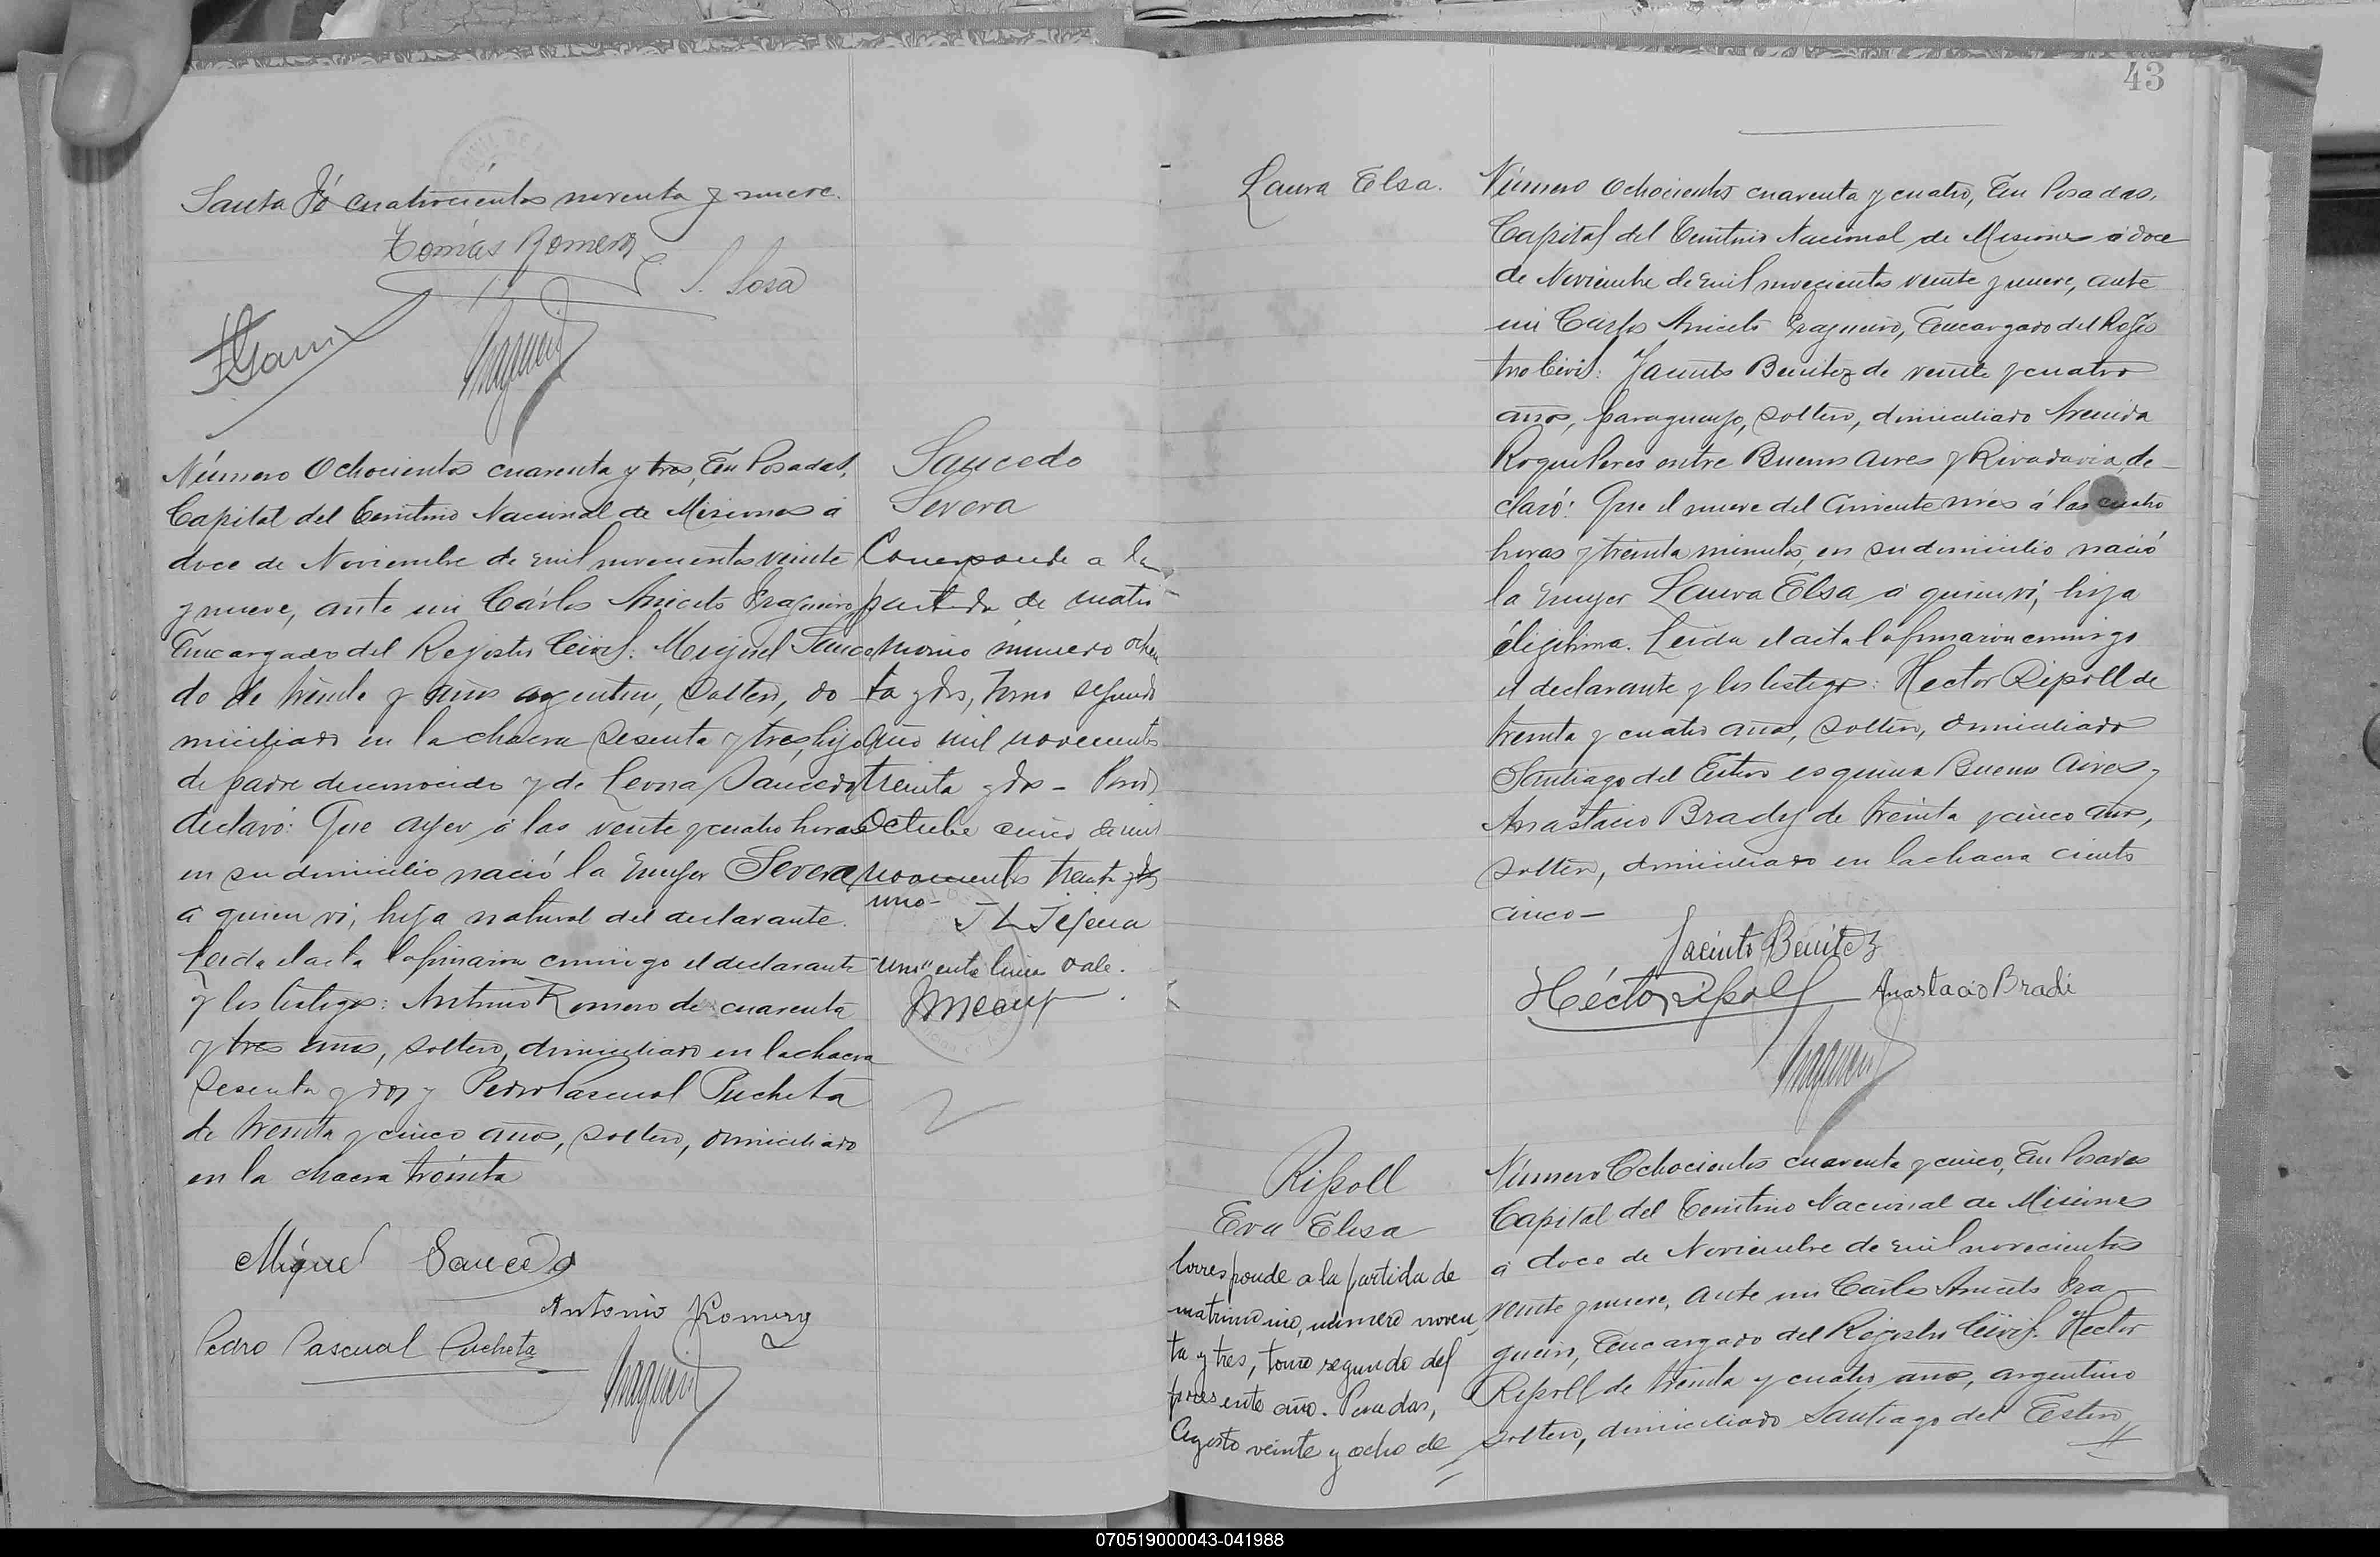 Santa Fé cuatrocientos noventa y nueve.
Tomás Romero
S. Sosa
Número Ochocientos cuarenta y tres, En Posadas,
Capital del Territorio Nacional de Misiones á
doce de Noviembre de mil novecientos veinte
y nueve, ante mi Cárlos Aniceto Fragueiro
Encargado del Registro Civil: Miguel Sauce
do de treinta y años argentino, soltero, do
miciliado en la chacra sesenta y tres, hijo
de padre desconocido y de Leona Saucedo
declaró: Que ayer á las veinte y cuatro horas
en su domicilio nació la mujer Severa
á quien vi, hija natural del declarante.
Leida el acta la firmaron conmigo el declarante
y los testigos: Antonio Romero de cuarenta
y tres años, soltero, domiciliado en la chacra
sesenta y dos y Pedro Pascual Pucheta
de treinta y cinco años, soltero, domiciliado
en la chacra tréinta
Miguel Saucedo
Antonio Romero
Pedro Pascual Pucheta
Saucedo
Severa
Corresponde a la
partida de matri
monio número ochen
ta y dos, tomo segundo
año mil novecientos
treinta y dos - Posad
Octubre cinco de mil
novecientos treinta y dos
uno-
"uno" entre lineas vale.
43
Laura Elsa.
Número Ochocientos cuarenta y cuatro, En Posadas,
Capital del Territorio Nacional de Misiones á doce
de Noviembre de mil novecientos veinte y nueve, ante
mi Carlos Aniceto Fragueiro, Encargado del Regis
tro Civil: Jacinto Benitez de veinte y cuatro
años, paraguayo, soltero, domiciliado Avenida
Roque Perez entre Buenos Aires y Rivadavia, de-
claró: Que el nueve del corriente mes á las cuatro
horas y treinta minutos, en su domicilio nació
la mujer Laura Elsa á quien vi, hija
iligitima. Leida el acta la firmaron conmigo
el declarante y los testigos: Hector Ripoll de
treinta y cuatro años, soltero, domiciliado
Santiago del Estero esquina Buenos Aires y
Anastacio Brady de treinta y cinco años,
soltero, domiciliado en la chacra ciento
cinco-
Jacinto Benitez
Héctor Ripoll
Anastacio Bradi
Ripoll
Eva Elisa
Corresponde a la partida de
matrimonio, número noven
ta y tres, tomo segundo del
presente año. Posadas,
Agosto veinte y ocho de
Número Ochocientos cuarenta y cinco, En Posadas
Capital del Territorio Nacional de Misiones
á doce de Noviembre de mil novecientos
veinte y nueve, ante mi Carlos Aniceto Fra
gueiro, Encargado del Registro Civil: Hector
Ripoll de treinta y cuatro años, argentino
soltero, domiciliado Santiago del Estero
070519000043-041988